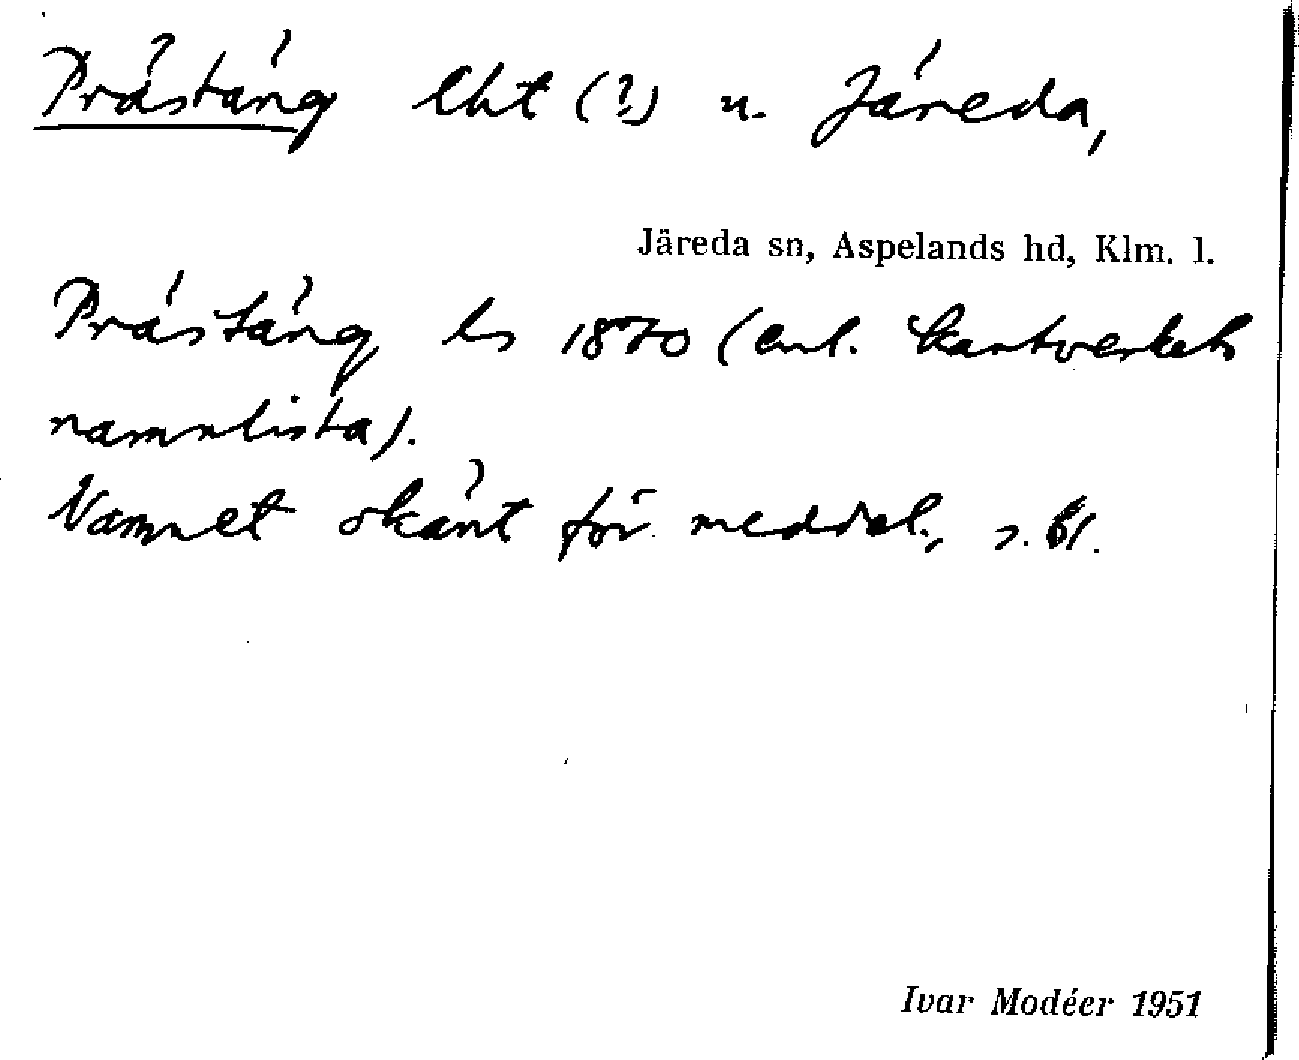 Prästäng lht (?) u. Järeda,
Järeda sn, Aspelands hd, Klm. l.
Prästäng ls 1870 (enl. kartverkets
namnlista).
Namnet okänt för meddel.,
Ivar Modéer 1951